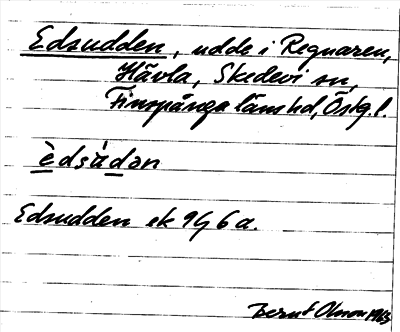 Edsudden, udde i Regnaren,
Hävla, Skedevi sn,
Finspånga läns hd, Östg. l.
èdsádən
Edsudden ek 9G 6a.
Bernt Olsson 1963